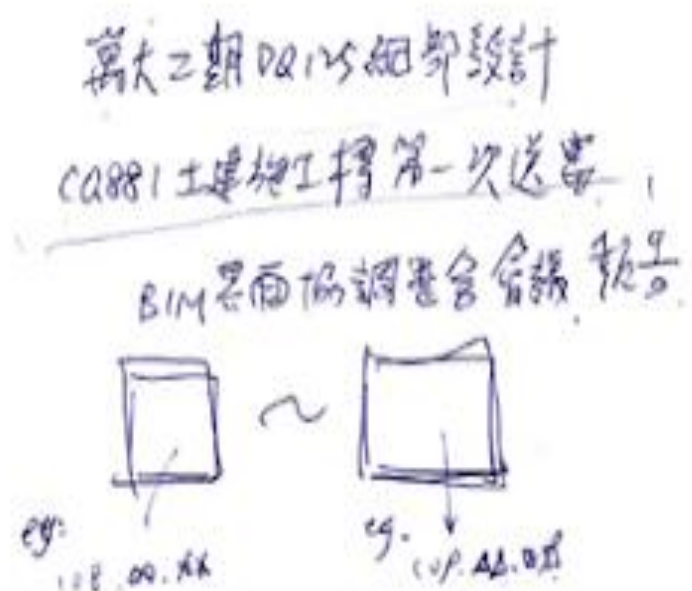 萬大二期DQ125細部設計
CQ881土建施工標第一次送審
BIM界面協調整合會議
eg. eg.
108.00.XX 109.ΔΔ.